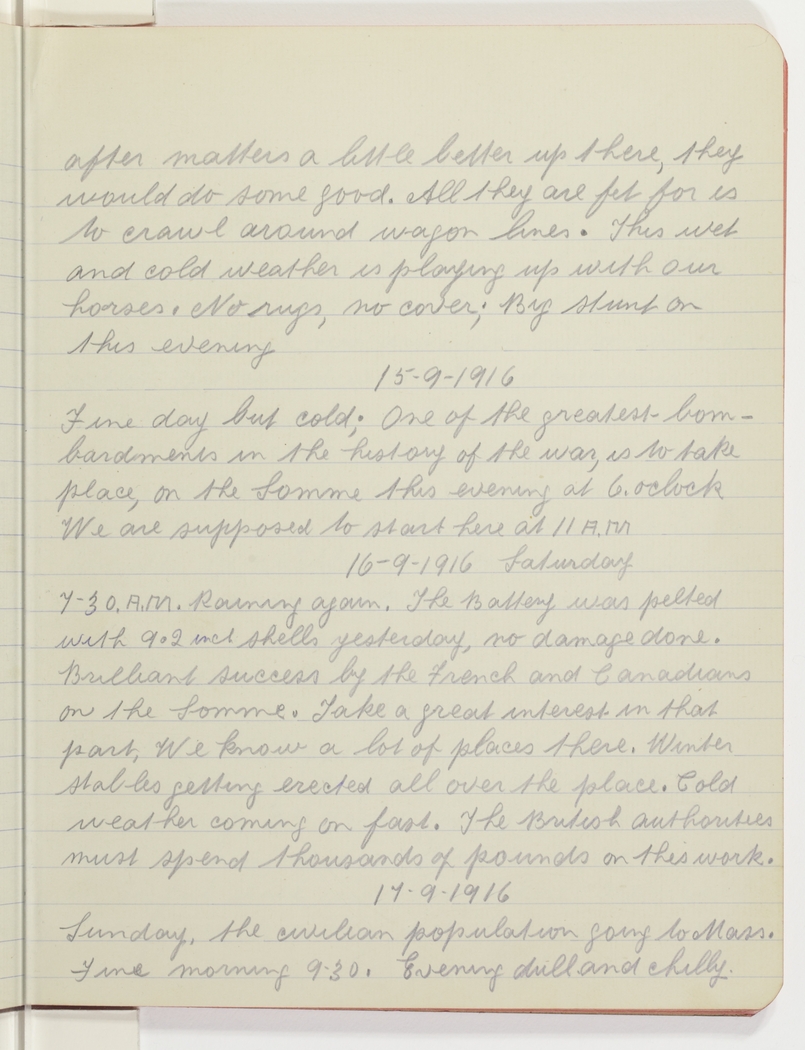 after matters a little better up there, they
would do some good. All they are fit for is
to crawl around wagon lines. This wet
and cold weather is playing up with our
horses. No rugs, no cover; Big stunt on
this evening
15-9-1916
Fine day but cold; One of the greatest bom-
bardments in the history of the war, is to take
place, on the Somme this evening at 6.oclock
We are supposed to start here at 11 A.M
16-9-1916 Saturday
7-30.A.M. Raining again. The Battery was pelted
with 9.2 inct shells yesterday, no damage done.
Brilliant success by the French and Canadians
on the Somme. Take a great interest in that
part, We know a lot of places there. Winter
stables getting erected all over the place. Cold
weather coming on fast. The British authorities
must spend thousands of pounds on this work.
17-9-1916
Sunday, the civilian population going to Mass.
Fine morning 9-30. Evening dull and chilly.